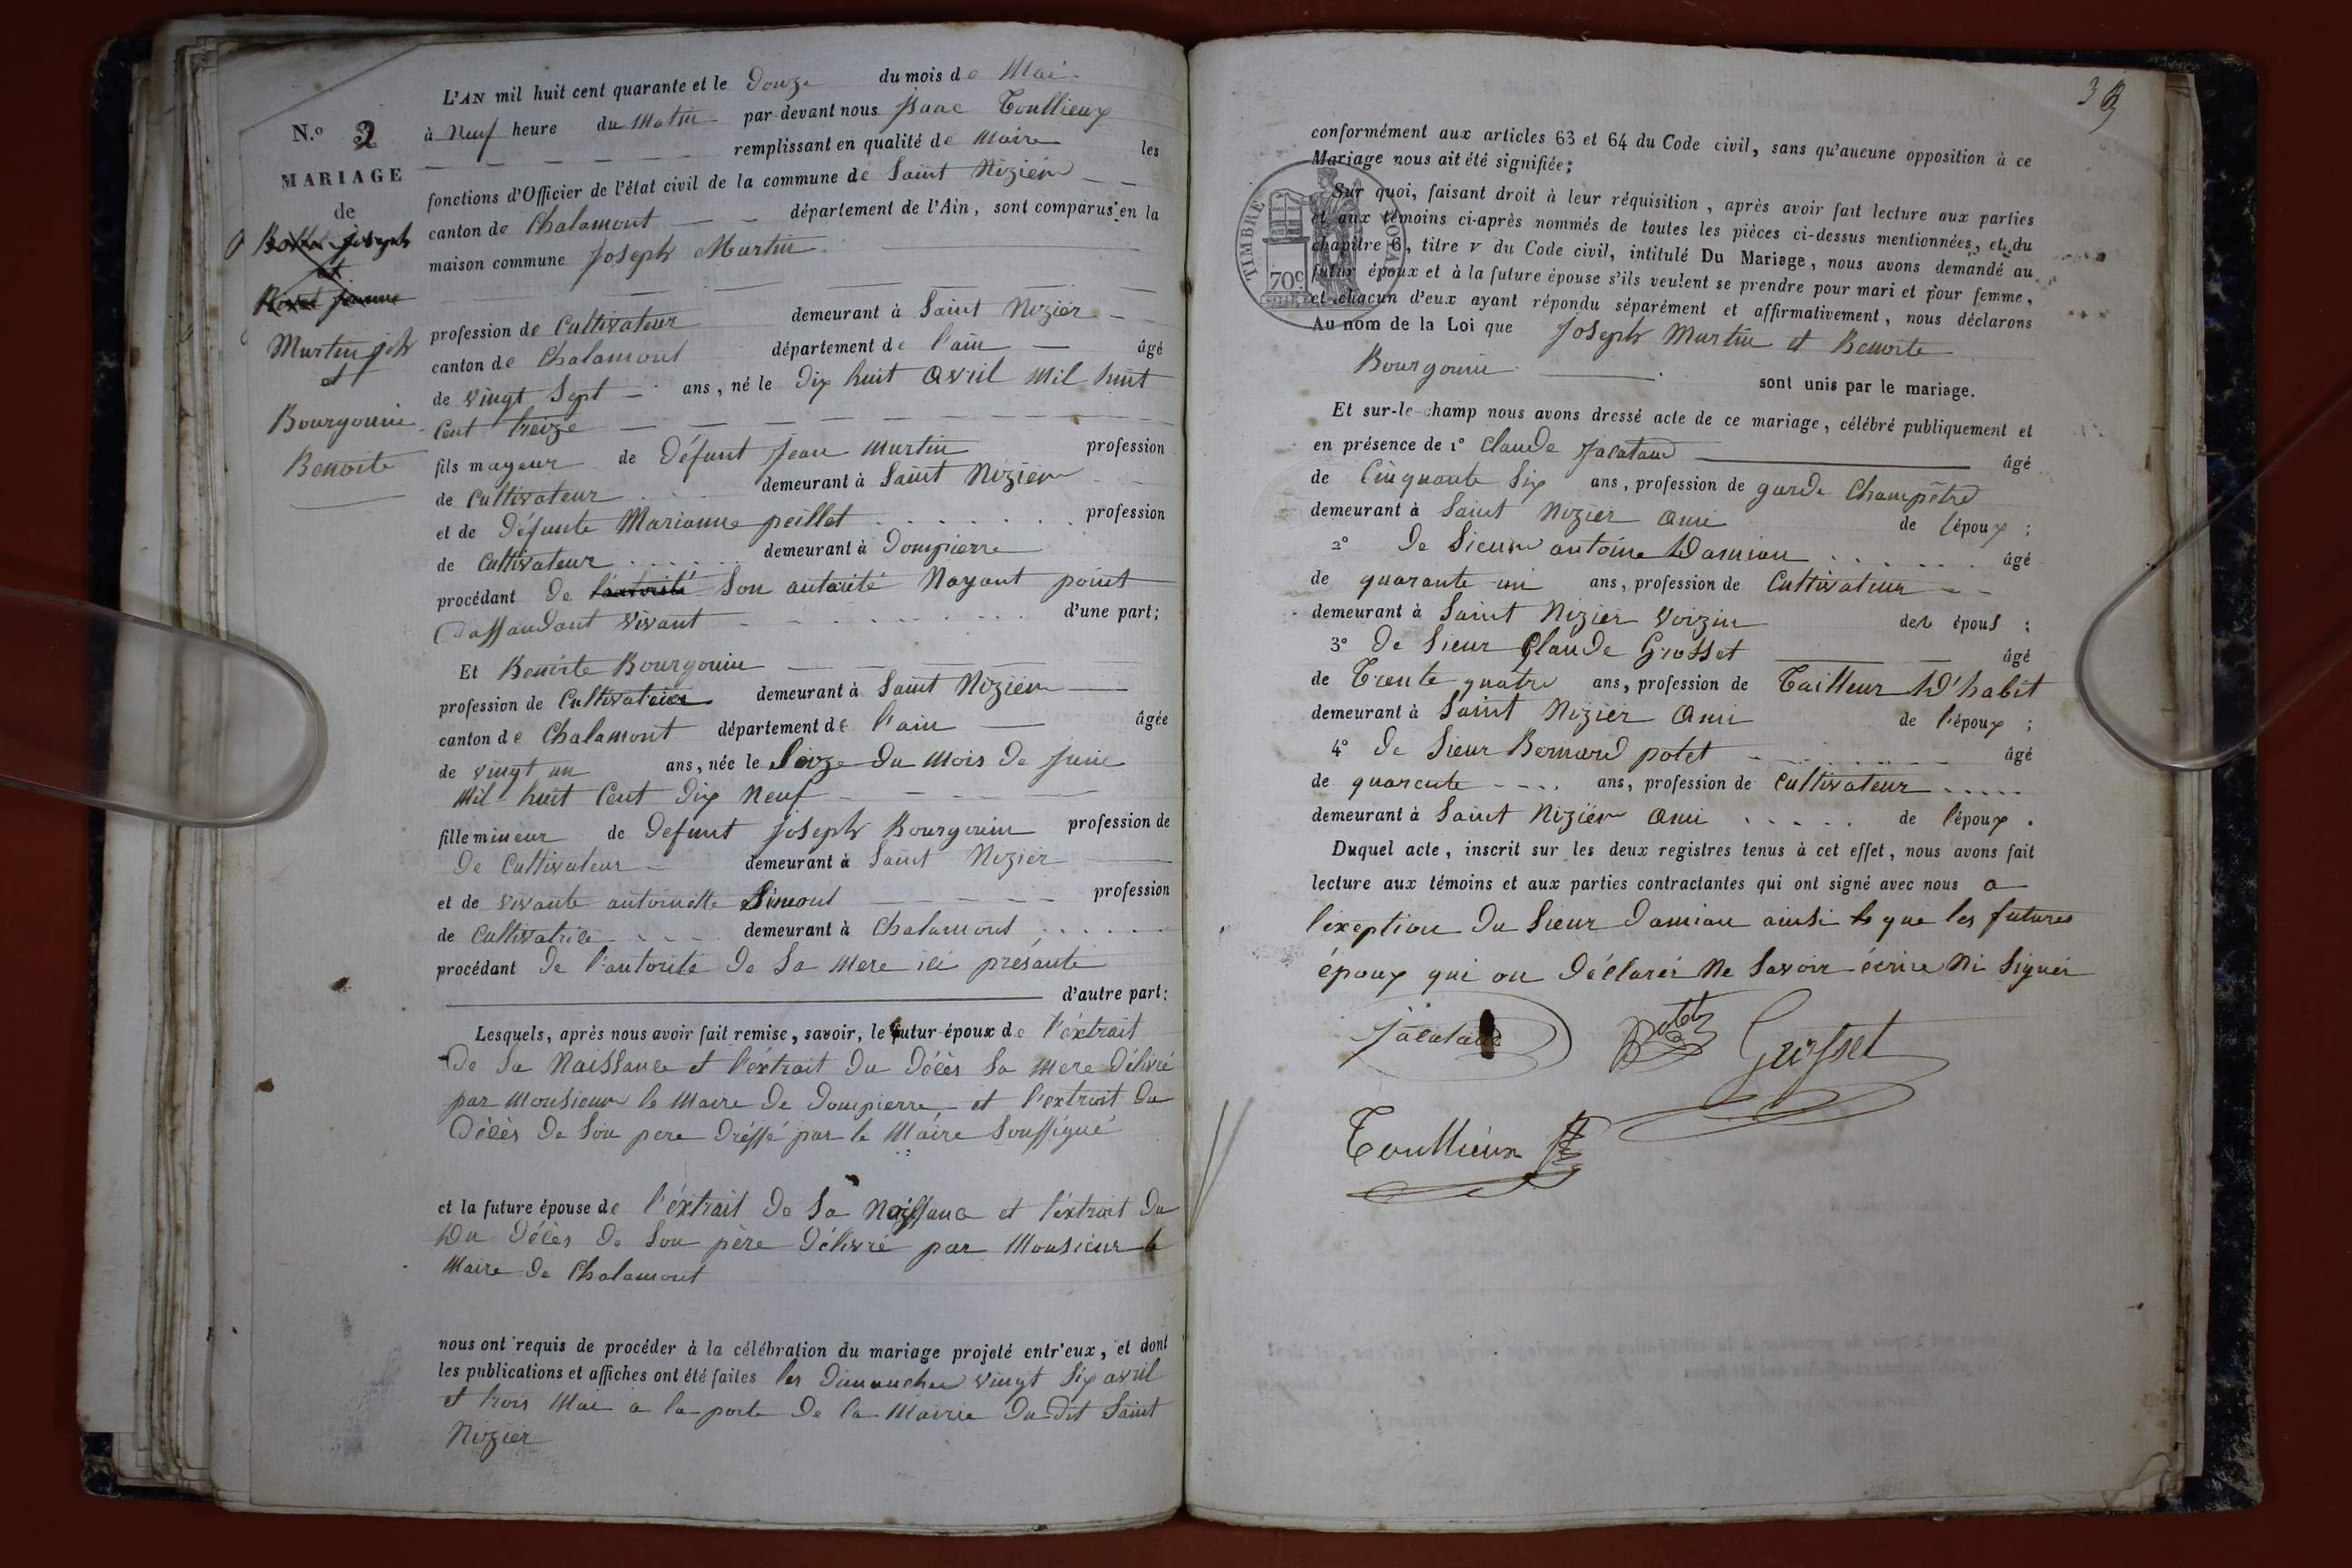 L'AN mil huit cent quarante et le Douze du mois de Mai
N.º 2 à Neuf heure du Matin par-devant nous Isaac Toullieux
remplissant en qualité de Maire les
MARIAGE
fonctions d'Officier de l'état civil de la commune de Saint Nizier
de
canton de Chalamont département de l'Ain, sont comparus en la
maison commune Joseph Martin
et
Jeanne
profession de Cultivateur demeurant à Saint Nizier
Martin jph
canton de Chalamont département de l'ain âgé
et
de vingt Sept ans, né le Dix huit Avril Mil huit
Bourgouin
Cent treize
Benoite
fils mageur de Défunt Jean Martin profession
de Cultivateur demeurant à Saint Nizier
et de Défunte Marianne peillet profession
de Cultivateur demeurant à Dompierre
procédant De l'autorité Son autorité Nayant point
Dassandant vivant d'une part;
Et Benoite Bourgouin
profession de Cultivateur demeurant à Saint Nizier
canton de Chalamont département de l'ain âgée
de vingt un ans, née le Seize Du Mois De Juin
Mil huit Cent Dix Neuf
fille mineur de Defunt Joseph Bourgouin profession de
De Cultivateur demeurant à Saint Nizier
et de vivante antoinette Simont profession
de Cultivatrice demeurant à Chalamont
procédant De l'autorité De Sa Mere ici présante
d'autre part;
Lesquels, après nous avoir fait remise, savoir, le futur époux de l'éxtrait
De Sa Naissance et l'éxtrait Du Décès Sa Mere Délivré
par Monsieur le Maire De Dompierre et l'extrait Du
Décès De Son pere Dréssé par le Maire Soussigné
et la future épouse de l'éxtrait De Sa Naissance et l'éxtrait Du
Du Décès De Son père Délivré par Monsieur le
Maire De Chalamont
nous ont requis de procéder à la célébration du mariage projeté entr'eux, et dont
les publications et affiches ont été faites les Dimanches vingt Six avril
et trois Mai a la porte De la Mairie Du dit Saint
Nizier
39
conformément aux articles 63 et 64 du Code civil, sans qu'aucune opposition à ce
Mariage nous ait été signifiée;
TIMBRE ROYAL
70c
Sur quoi, faisant droit à leur réquisition, après avoir fait lecture aux parties
et aux témoins ci-après nommés de toutes les pièces ci-dessus mentionnées, et du
chapitre 6, titre v du Code civil, intitulé Du Mariage, nous avons demandé au
futur époux et à la future épouse s'ils veulent se prendre pour mari et pour femme,
et chacun d'eux ayant répondu séparément et affirmativement, nous déclarons
Au nom de la Loi que Joseph Martin et Benoite
Bourgouin sont unis par le mariage.
Et sur-le-champ nous avons dressé acte de ce mariage, célébré publiquement et
en présence de 1º Claude Jacataud âgé
de Cinquante Six ans, profession de garde Champêtre
demeurant à Saint Nizier Ami de l'époux;
2º De Sieur antoine Damian âgé
de quarante un ans, profession de Cultivateur
demeurant à Saint Nizier Voizin des épous;
3º De Sieur Claude Grosset âgé
de Trente quatre ans, profession de Tailleur D'habit
demeurant à Saint Nizier Ami de l'époux;
4º De Sieur Bernard potet âgé
de quarente ans, profession de Cultivateur
demeurant à Saint Nizier Ami de l'époux.
Duquel acte, inscrit sur les deux registres tenus à cet effet, nous avons fait
lecture aux témoins et aux parties contractantes qui ont signé avec nous a
l'exeption Du Sieur Damian ainsi que les futures
époux qui on Déclarés Ne Savoir écrire Ni Signer
Jacataud Potet Grosset
Toullieux